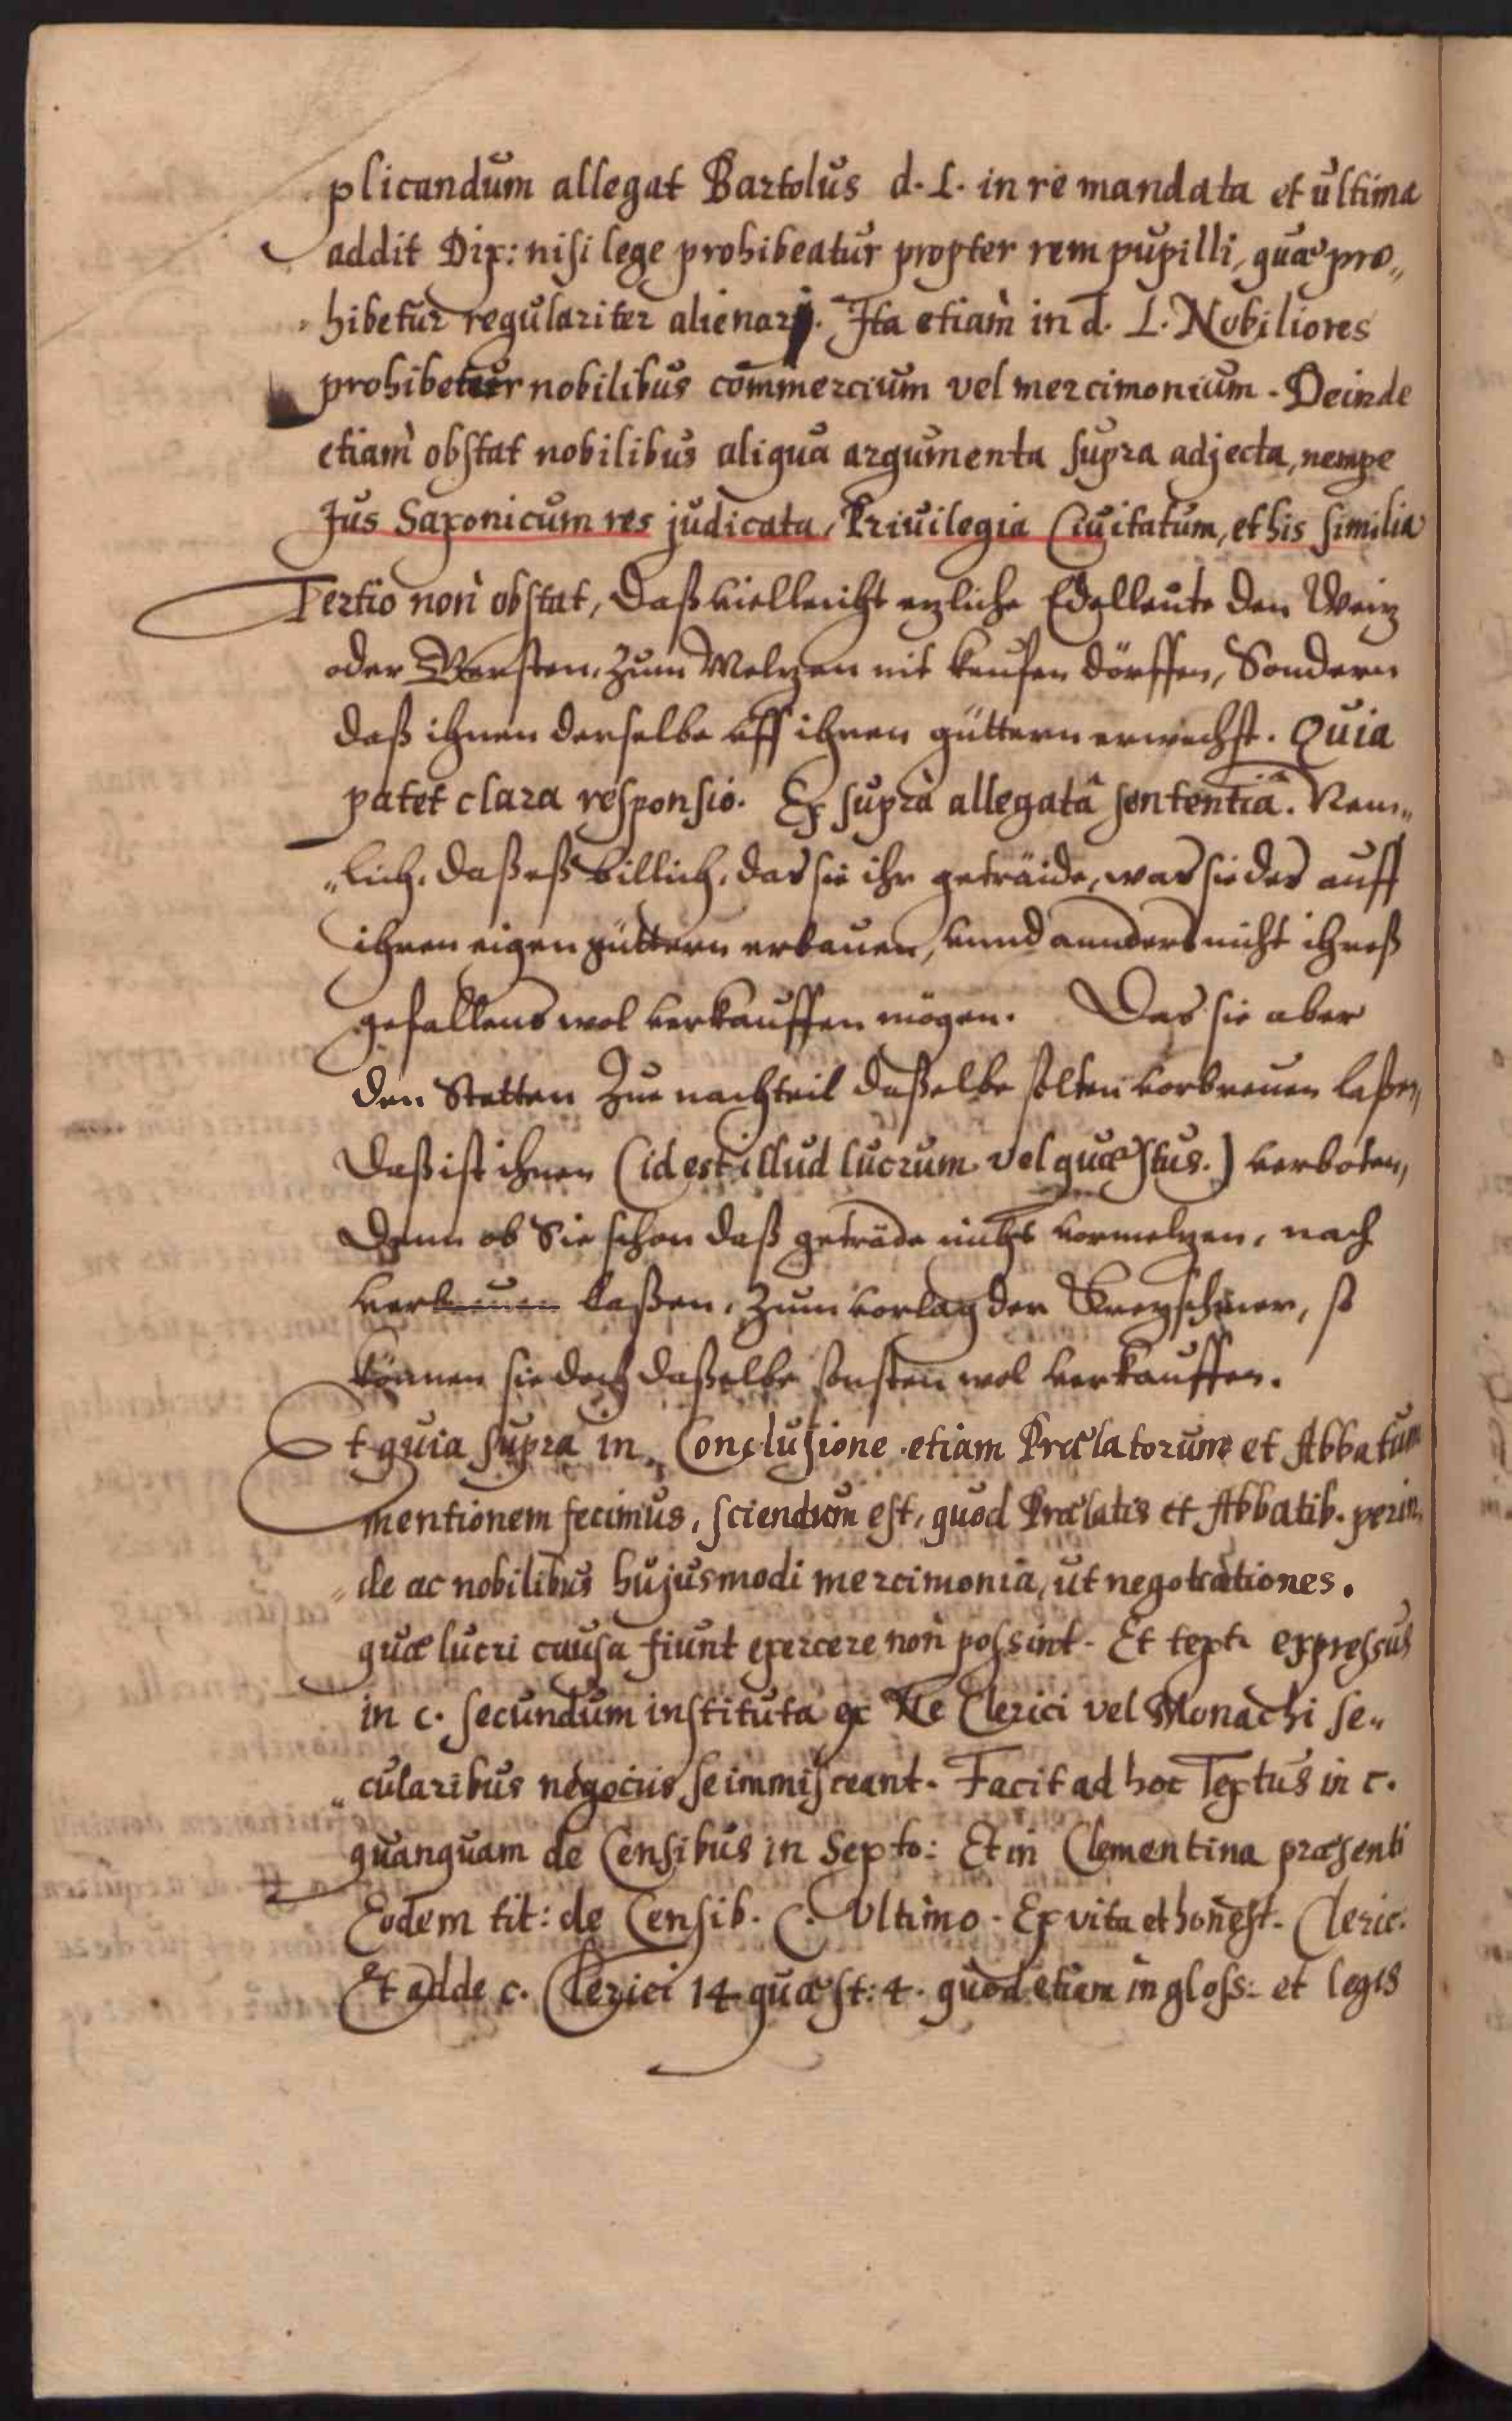 plicandum allegat Bartolus d. L. in re mandata et ultima
addit Dix: nisi lege prohibeatur propter rem pupilli, quæ pro„
hibetur regulariter alienari. Ita etiam in d. L. Nobiliores
prohibetur nobilibus commercium vel mercimonium. Deinde
etiam obstat nobilibus aliqua argumenta supra adjecta, nempe
Jus Saxonicum res judicata, Priuilegia Ciuitatum, et his similia
Tertio non obstat, Daß vielleicht etzliche Edelleute den Weitz
oder Gersten, zum Meltzen nit kaufen dörffen, Sondern
daß ihnen derselbe uff ihren güttern erwechst. Quia
patet clara responsio. Ex supra allegatâ sententiâ. Nem„
„lich, daß eß billich, das sie ihr geträide, was sie des auff
ihren eigen güttern erbauen, vnnd annders nicht ihreß
gefallens wol verkauffen mögen. Das sie aber
den Stetten zue nachteil daßelbe solten vorbreuen laßen,
Daß ist ihnen (id est illud lucrum vel quæstus.) verboten,
Dann ob Sie schon daß geträde nicht vormeltzen, noch
laßen, zum vorlag der Kretzschmer, so
können sie doch daßelbe sonsten wol verkauffen.
Et quia supra in Conclusione etiam Prælatorum et Abbatum
mentionem fecimus, sciendum est, quod Prælatis et Abbatib. perin„
„de ac nobilibus hujusmodi mercimonia, ut negotiationes.
quæ lucri causa fiunt exercere non possint. Et text. expressus
in c. secundum instituta ex Ne Clerici vel Monachi se„
„cularibus negociis se immisceant. Facit ad hoc Textus in c.
quanquam de Censibus in Sexto: Et in Clementina præsenti
Eodem tit: de Censib. C. Ultimo. Ex vita et honest. Cleric.
Et adde c. Clerici 14 quæst: 4. quod etiam in gloss: et legis